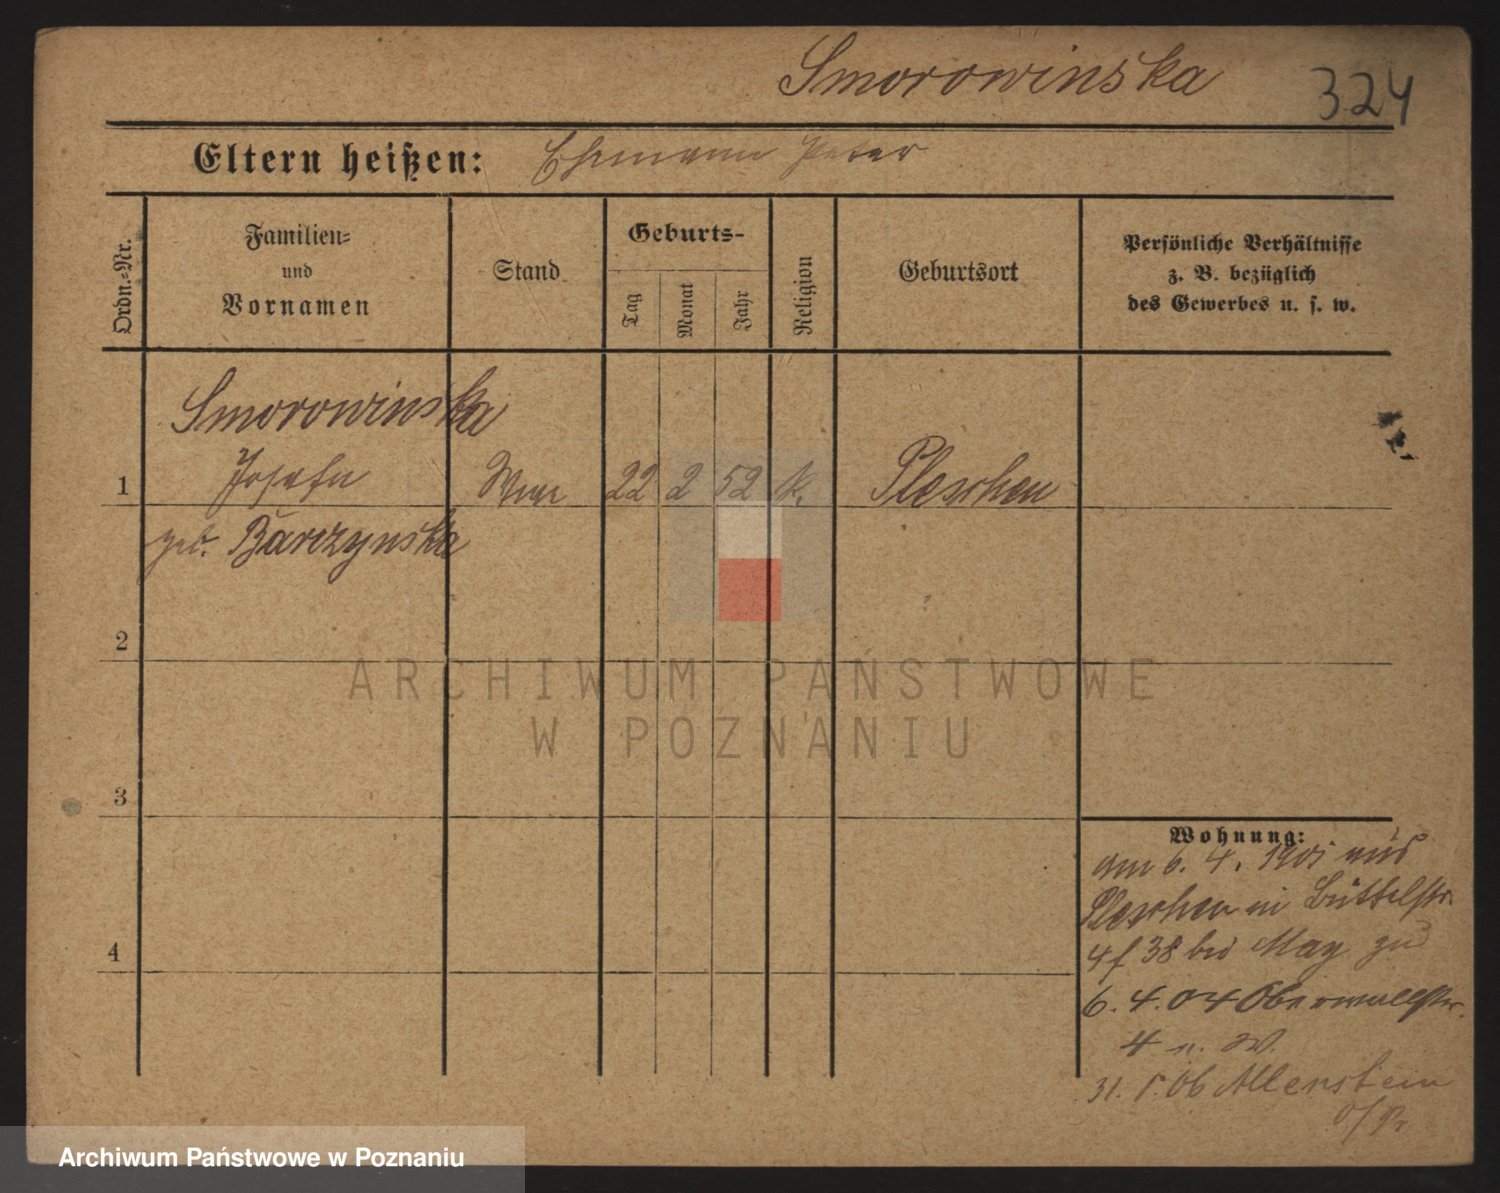 Smorowinska
324
Eltern heißen: Ehemann Peter
Ordn.=Nr.
Familien=
und
Vornamen
Stand
Geburts-
Tag
Monat
Jahr
Religion
Geburtsort
Persönliche Verhältnisse
z. B. bezüglich
des Gewerbes u. s. w.
Smorowinska
1 Josefa Wwe 22 2 52 k. Pleschen
geb. Barczynska
2
3
4
Wohnung:
am 6. 4. 1901 aus
Pleschen in Büttelstr.
4 38 bei May zu
6. 4. 04 Oberwallstr.
4 n. W.
31. 1. 06 Allenstein
o/Pr
ARCHIWUM PAŃSTWOWE
W POZNANIU
Archiwum Państwowe w Poznaniu